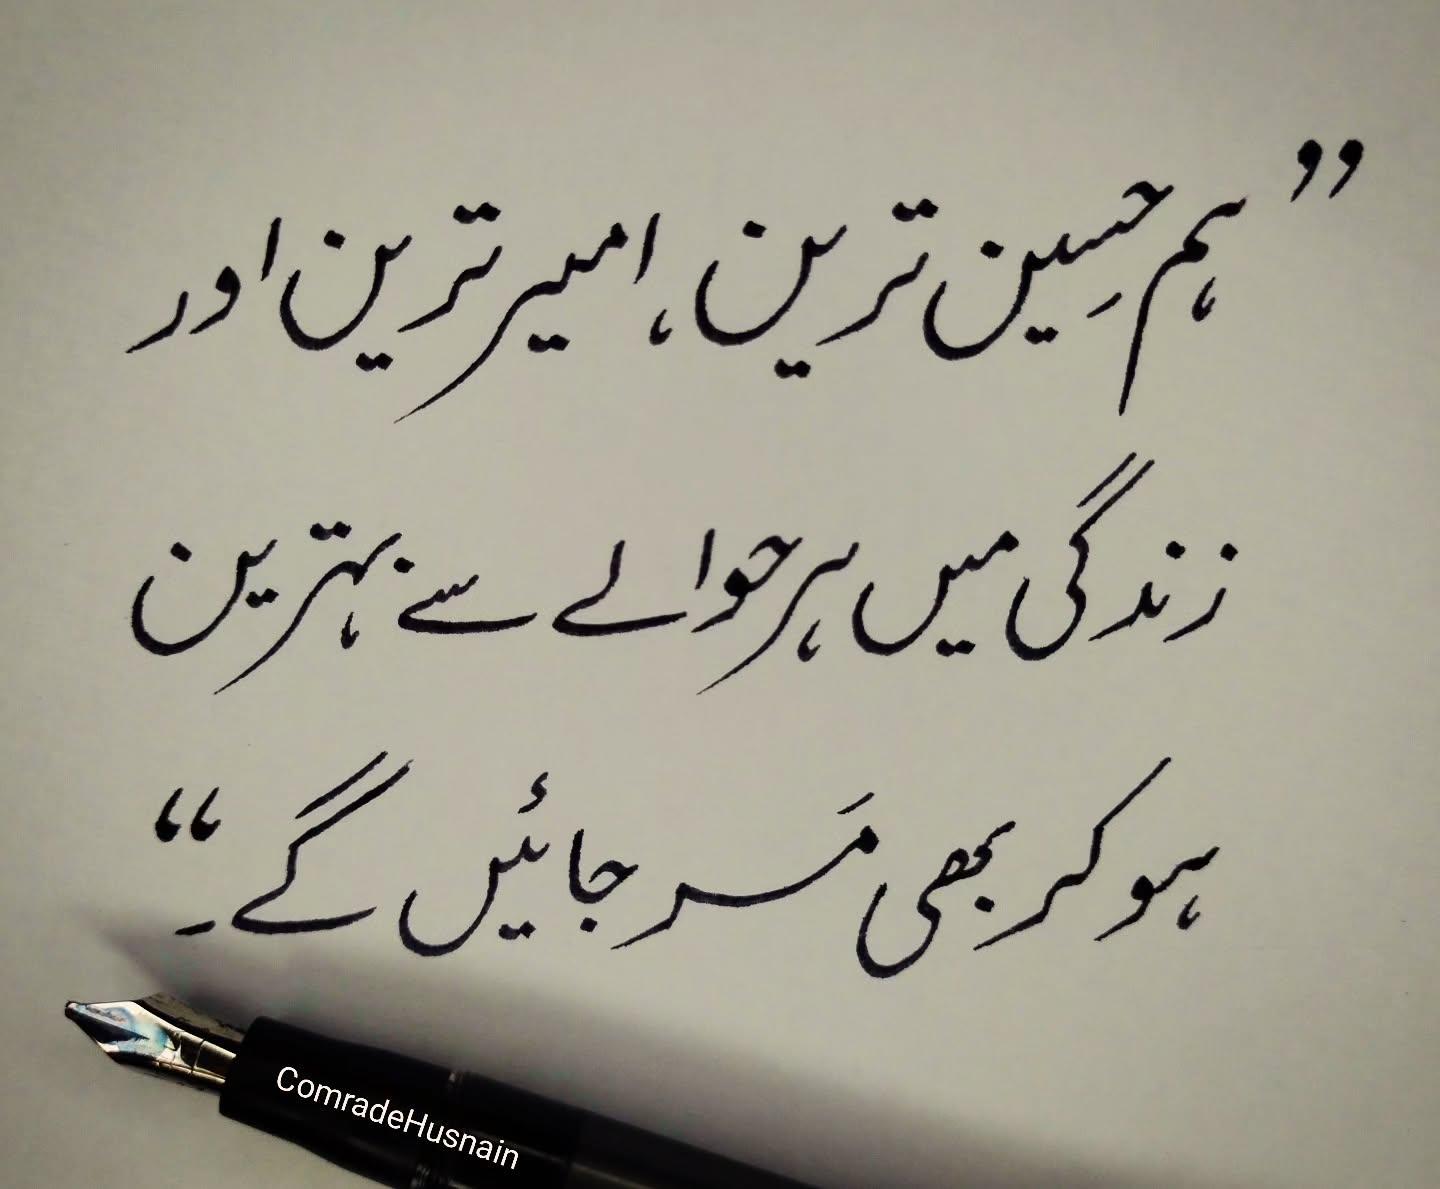 ”ہم حسِین ترین، امیر ترین اور
زندگی میں ہر حوالے سے بہترین
ہو کر بھی مَر جائیں گے۔“
ComradeHusnain